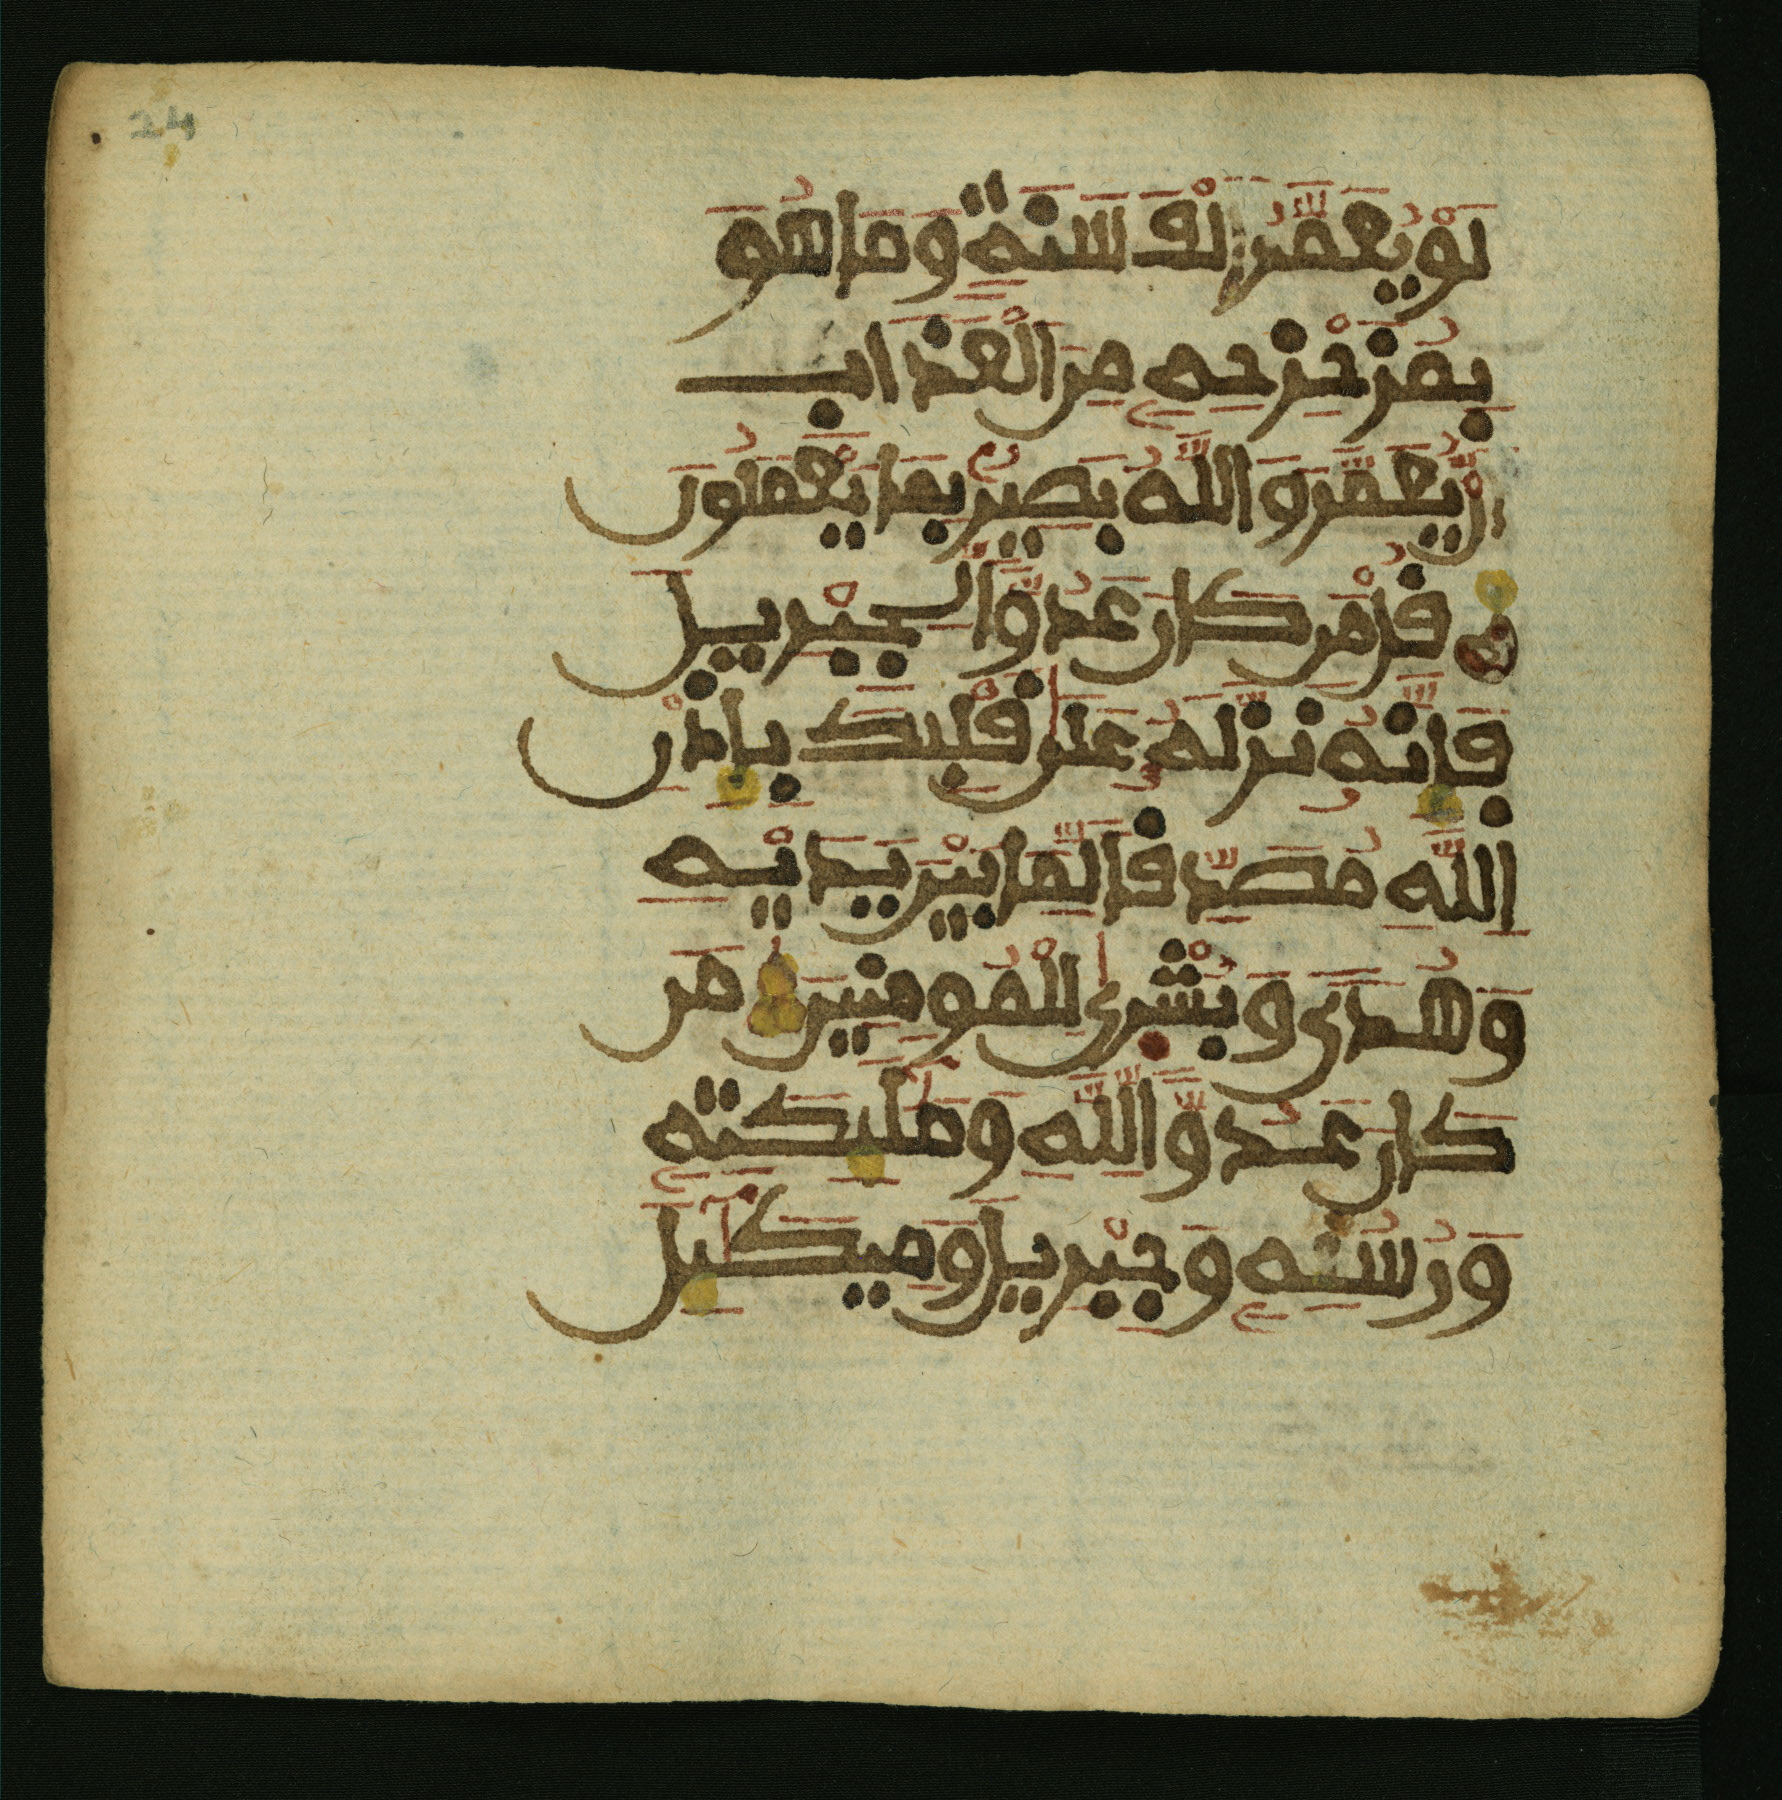 24
لَوْ يُعَمَّرُ أَلْفَ سَنَةٍ وَمَا هُوَ
بِمُزَحْزِحِهِ مِنَ الْعَذَابِ
أَنْ يُّعَمَّرَ وَاللَّهُ بَصِيرٌ بِمَا يَعْمَلُونَ
قُلْ مَن كَانَ عَدُوًّا لِّجِبْرِيلَ
فَإِنَّهُ نَزَّلَهُ عَلَىٰ قَلْبِكَ بِإِذْنِ
اللَّهِ مُصَدِّقًا لِّمَا بَيْنَ يَدَيْهِ
وَهُدًى وَبُشْرَىٰ لِلْمُومِنِينَ مَن
كَانَ عَدُوًّا لِّلَّهِ وَمَلَٰئِكَتِهِ
وَرُسُلِهِ وَجِبْرِيلَ وَمِيكَٰئِلَ